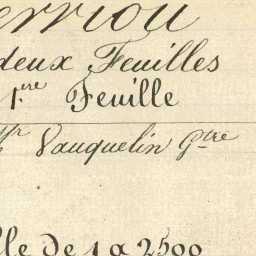 erriou
deux Feuilles
1.re Feuille
Vauquelin Gtre
lle de 1 a 2500